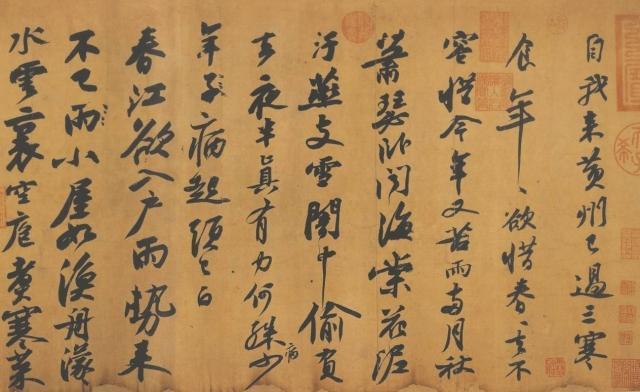 自我来黄州已過三寒
食年〻欲惜春〻去不
容惜今年又苦雨兩月秋
蕭瑟卧聞海棠花泥
汙燕支雪闇中偷負
去夜半真有力何殊少
病
年子病起頭已白
春江欲入戶雨勢来
不已雨小屋如漁舟濛
水雲裏空庖煮寒菜